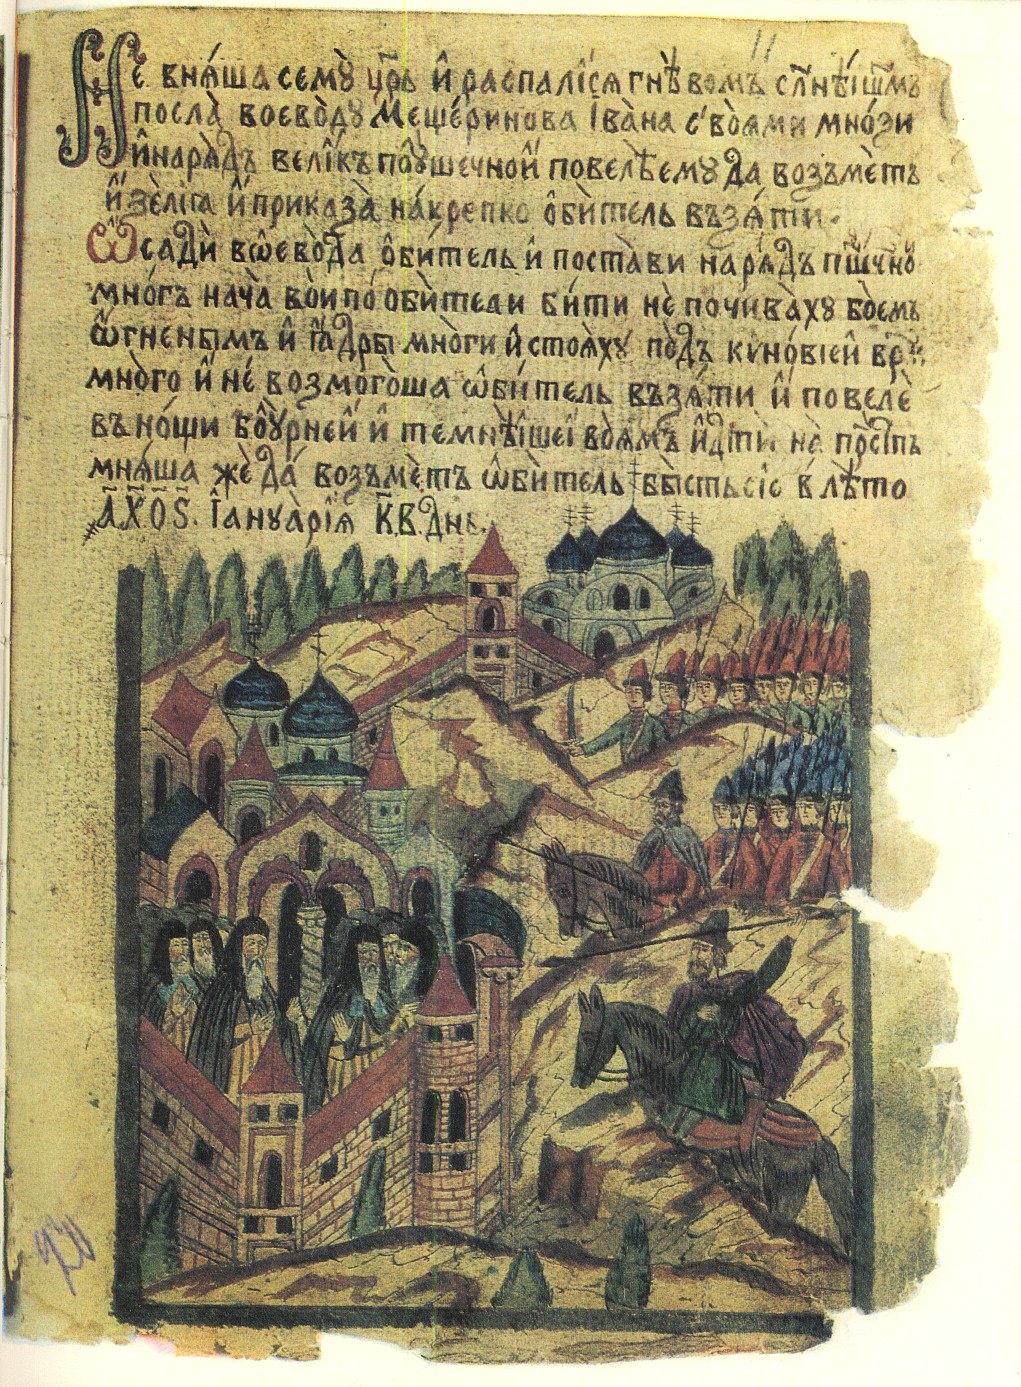 11
Не внѧ́ша семꙋ̀ цр҃ь и҆ распалі́сѧ гнѣ́вомъ
посла̀ воево̀дꙋ Меще́ринова Іва̀на с' во̀ѧми мно́зи
и҆ нарѧ̀дъ вели́къ пꙋшечной повелѣ̀ емꙋ да возъмѐтъ
и҆ и҆ приказа̀ на́крепко ѻ҆би́тель взѧ́ти.
Ѡ҆садѝ вѡево̀да ѻ҆би́тель и҆ поста̀ви нарѧ́дъ
мно́гъ нача̀ во̀и по ѻби̇тели би́ти не̇ почива̀хꙋ бо̀емъ
ѽгненымъ и҆ ꙗ҆̀дры мно̀ги и҆ стоѧ̀хꙋ по̀дъ кино́віей
мно́го и҆ не́ возмого́ша ѡ҆би́тель взѧ́ти и҆ повелѐ
въ но́щи бꙋ́рней и҆ темнѣ́йшей во̀ѧмъ и҆тѝ на при́стꙋпъ
мнѧ́ша же̇ да̀ возъмѐтъ ѡ҆би̇тель бы́сть сіе̇ в лѣ́то
҂АХОЅ. Іаннꙋа̀ріѧ КВ. днь.